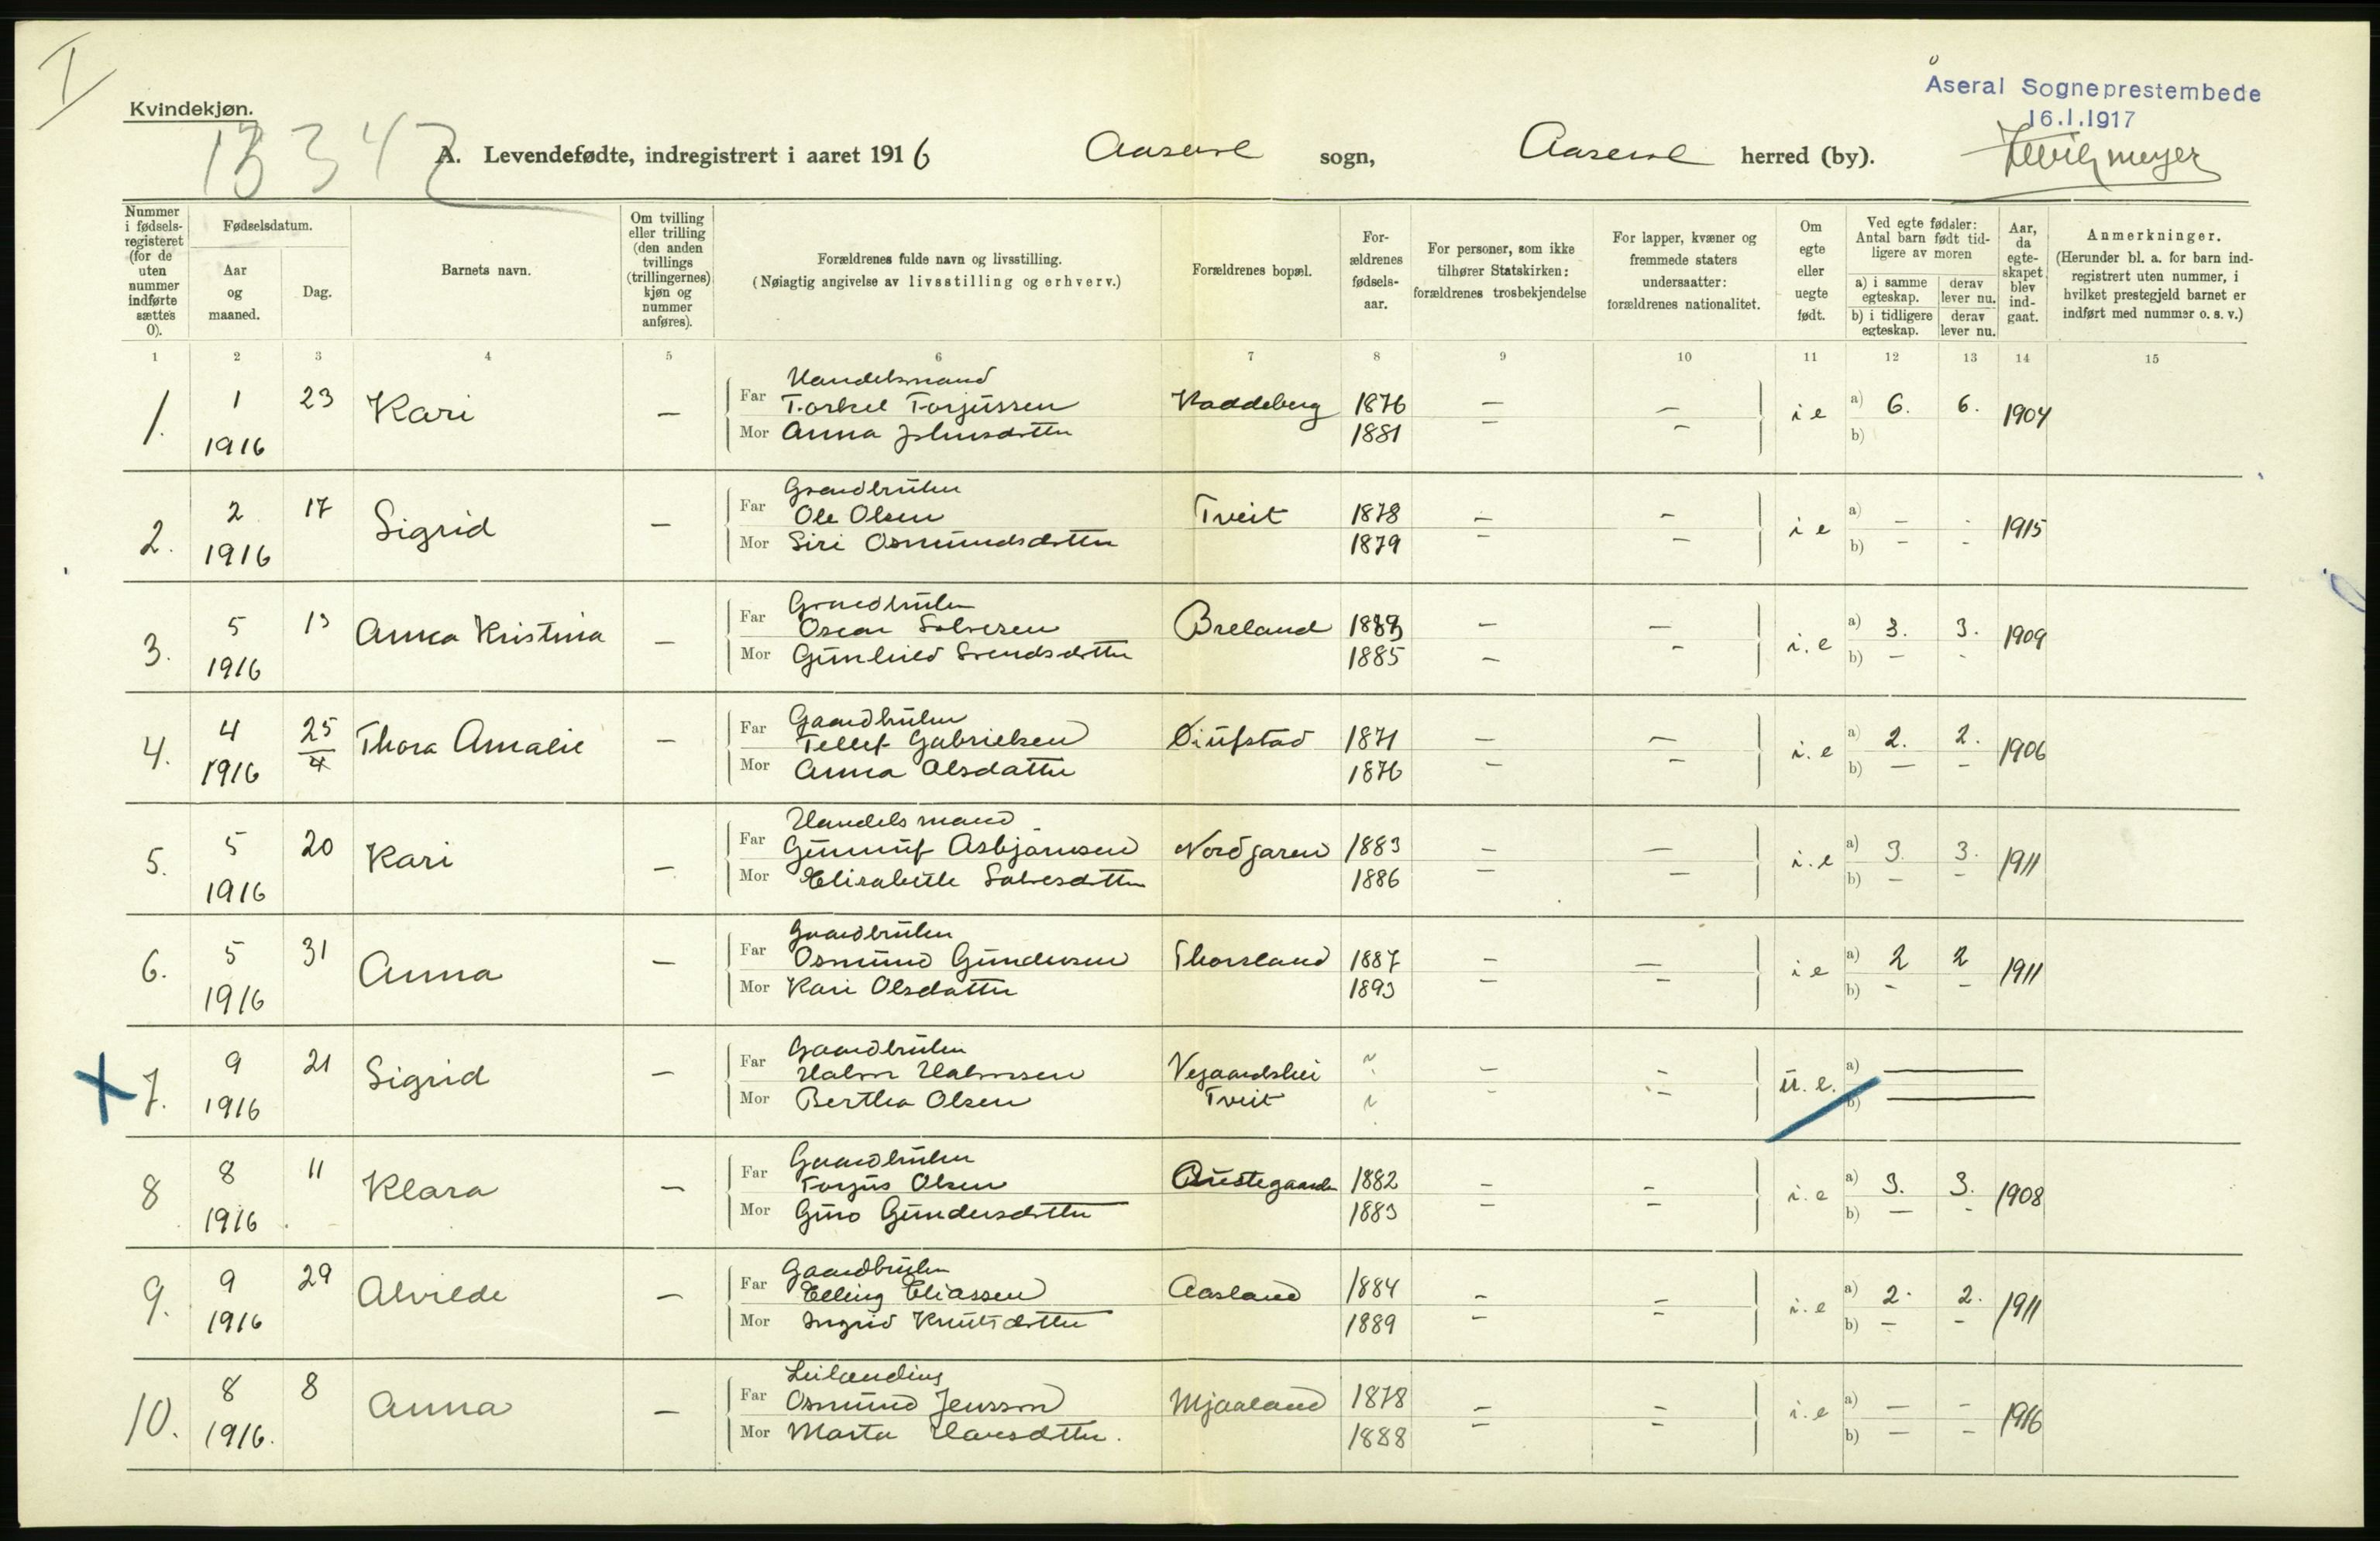 I
Kvindekjøn.
Åseral Sogneprestembede
16.1.1917
13347
A. Levendefødte, indregistrert i aaret 1916 Aaseral sogn, Aaseral herred (by).
Nummer i fødselsregisteret (for de uten nummer indførte sættes 0).
Fødselsdatum.
Aar og maaned.
Dag.
Barnets navn.
Om tvilling eller trilling (den anden tvillings (trillingernes) kjøn og nummer anføres).
Forældrenes fulde navn og livsstilling.
(Nøiagtig angivelse av livsstilling og erhverv.)
Forældrenes bopæl.
Forældrenes fødselsaar.
For personer, som ikke tilhører Statskirken: forældrenes trosbekjendelse
For lapper, kvæner og fremmede staters undersaatter: forældrenes nationalitet.
Om egte eller uegte født.
Ved egte fødsler: Antal barn født tidligere av moren
a) i samme egteskap. derav lever nu.
b) i tidligere egteskap. derav lever nu.
Aar, da egteskapet blev indgaat.
Anmerkninger.
(Herunder bl. a. for barn indregistrert uten nummer, i hvilket prestegjeld barnet er indført med nummer o. s. v.)
1 2 3 4 5 6 7 8 9 10 11 12 13 14 15
Handelsmand
1. 1 23 Kari — Far Torkel Torjussen Kaddeberg 1876 — — i e a) 6. 6. 1904
1916 Mor Anna Johnsdatter 1881 — — b)
Gaardbruker
2. 2 17 Sigrid — Far Ole Olsen Tveit 1878 — — i e a) — - 1915
1916 Mor Siri Osmundsdatter 1879 — — b) — -
Gaardbruker
3. 5 13 Anna Kristina — Far Oscar Salvesen Breland 1883 — — i. e a) 3. 3. 1909
1916 Mor Gunhild Svendsdatter 1885 — - b) — -
Gaardbruker
4. 4 25/4 Thora Amalie — Far Tellef Gabrielsen Øiufstad 1871 — — i. e a) 2. 2. 1906
1916 Mor Anna Olsdatter 1876 — — b) — -
Handelsmand
5. 5 20 Kari — Far Gunnuf Asbjørnsen Nordgaren 1883 — — i. e a) 3 3. 1911
1916 Mor Elisabeth Salvesdatter 1886 — — b) — -
Gaardbruker
6. 5 31 Anna — Far Osmund Gundersen Thorsland 1887 — — i e a) 2 2 1911
1916 Mor Kari Olsdatter 1893 — — b) - -
Gaardbruker
X 7. 9 21 Sigrid — Far Halvor Halvorsen Vegaardshei — — u. e. a) —
1916 Mor Bertha Olsen Tveit - — b) —
Gaardbruker
8 8 11 Klara — Far Torjus Olsen Austegaarden 1882 — — i. e a) 3. 3. 1908
1916 Mor Guro Gundersdatter 1883 — — b) — -
Gaardbruker
9. 9 29 Alvilde — Far Elling Eliassen Aasland 1884 — — i. e a) 2. 2. 1911
1916 Mor Ingrid Knutsdatter 1889 — — b) — -
Leilænding
10. 8 8 Anna — Far Osmund Jensson Mjaaland 1878 — — i. e a) — - 1916
1916. Mor Marta Hansdatter. 1888 — — b) — -